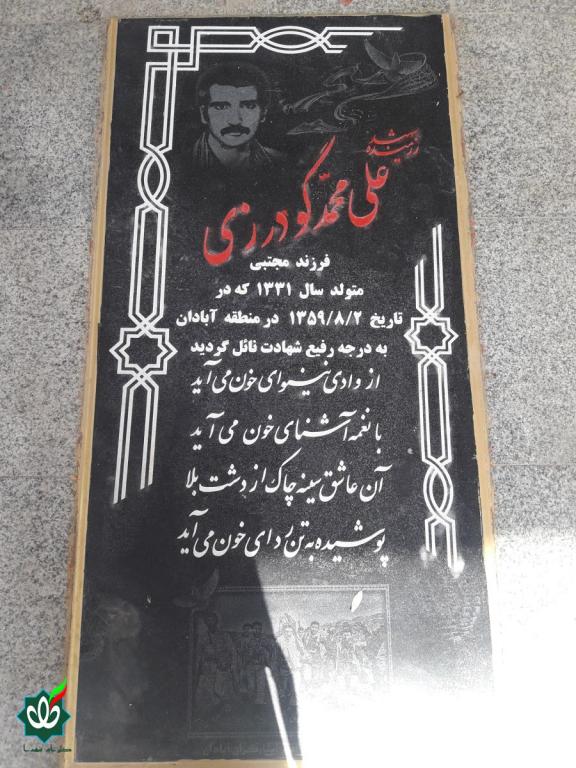 رزمنده شهید
علی محمد گودرزی
فرزند مجتبی
متولد سال ۱۳۳۱ که در
تاریخ ۱۳۵۹/۸/۲ در منطقه آبادان
به درجه رفیع شهادت نائل گردید
از وادی نینوای خون می آید
با نغمه آشنای خون می آید
آن عاشق سینه چاک از دشت بلا
پوشیده به تن ردای خون می آید